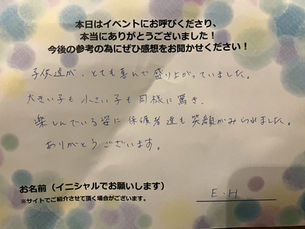 本日はイベントにお呼びくださり、
本当にありがとうございました!
今後の参考の為にぜひ感想をお聞かせください!
子供達が、とても喜んで盛り上がっていました。
大きい子も小さい子も同様に驚き、
楽しんでいる姿に保護者達も笑顔がみられました。
ありがとうございます。
お名前(イニシャルでお願いします)
※サイトでご紹介させて頂く場合がございます。
E.H